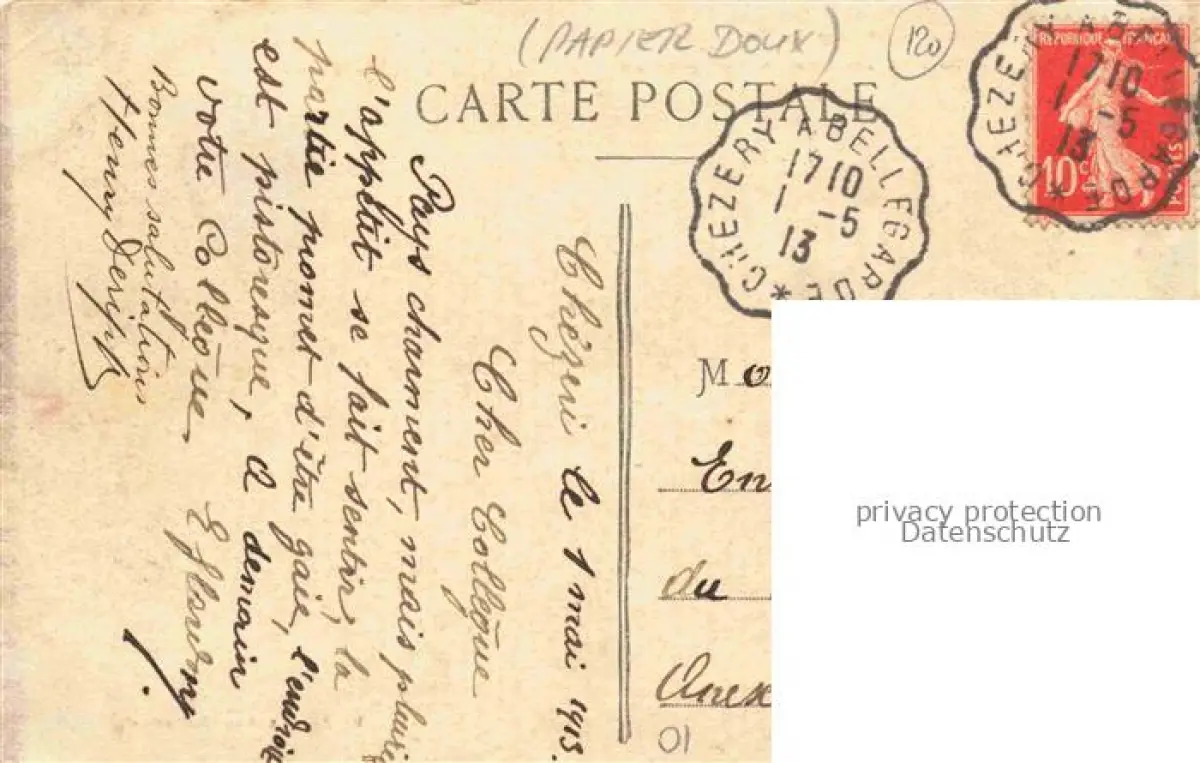 (PAPIER DOUX)
120
CARTE POSTALE
RÉPUBLIQUE FRANÇAISE
10 c
POSTES
CHEZERY A BELLEGARDE *
17 10
1 -5
13
CHEZERY A BELLEGARDE *
17 10
1 -5
13
Chézeri le 1 mai 1913.
Cher Collègue
Pays charmant, mais pluvi
l'appétit se fait sentir, la
partie promet d'être gaie, l'endroit
est pistoresque, A demain
votre Collègue
Bonnes salutations
Henry
M
En
du
01
privacy protection
Datenschutz